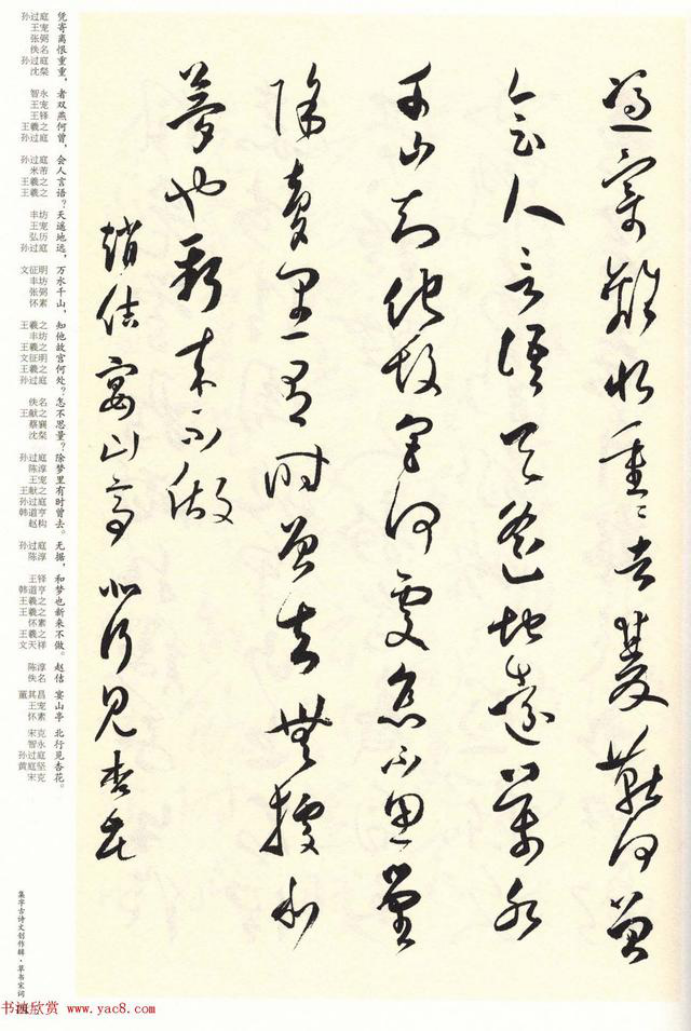 憑寄離恨重重者雙燕何曾
會人言語天遙地遠萬水
千山知他故宮何處怎不思量
除夢里有時曾去無據和
夢也新來不做
趙佶宴山亭北行見杏花
凭寄离恨重重，者双燕何曾，会人言语？天遥地远，万水千山，知他故宫何处？怎不思量？除梦里有时曾去。无据，和梦也新来不做。赵佶 宴山亭 北行见杏花。
孙过庭 王宠 张弼 佚名 孙过庭 沈粲 智永 王宠 王铎 王羲之 孙过庭 孙过庭 米芾 王羲之 王羲之 丰坊 王宠 弘历 孙过庭 文征明 丰坊 张弼 怀素 王羲之 丰坊 王羲之 文征明 王羲之 孙过庭 佚名 王献之 蔡襄 沈粲 孙过庭 陈淳 王宠 王献之 孙过庭 韩道亨 赵构 孙过庭 陈淳 王铎 韩道亨 王羲之 王羲之 怀素 王羲之 文天祥 陈淳 佚名 董其昌 王宠 怀素 宋克 智永 孙过庭 黄庭坚 宋克
集字古诗文创作辑·草书宋词
书法欣赏 www.yac8.com